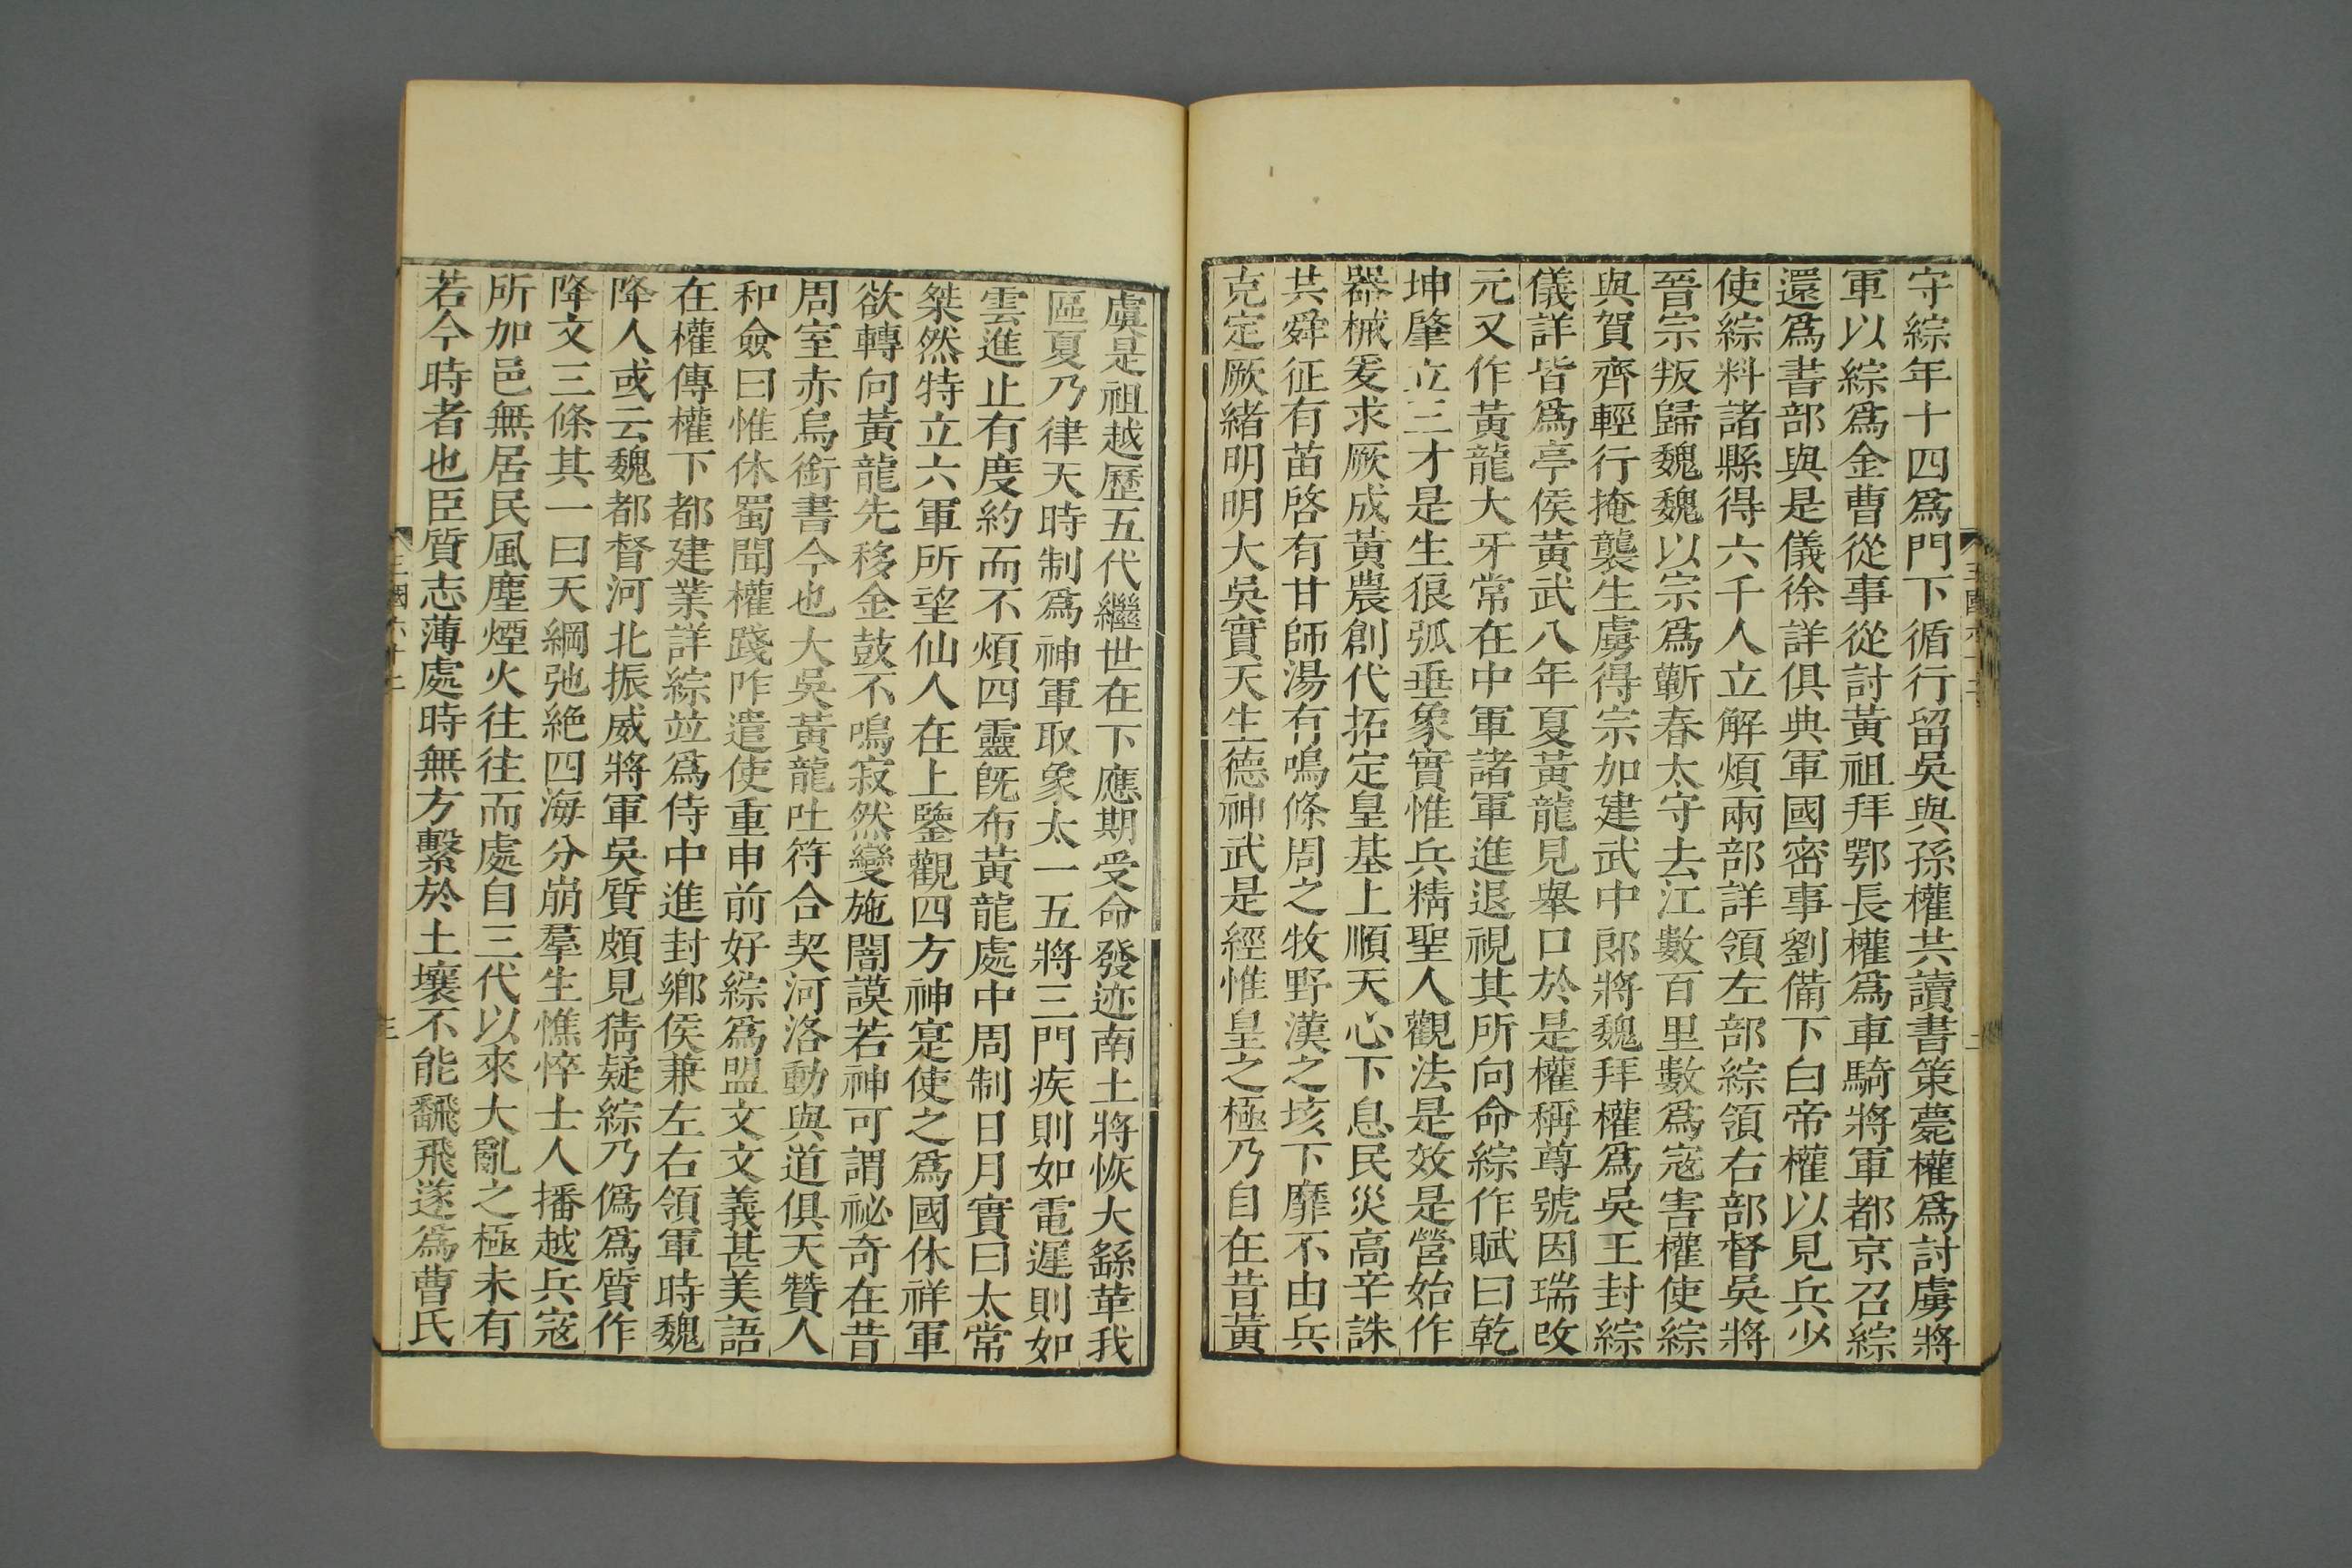 守綜年十四爲門下循行留吳與孫權共讀書策薨權爲討虜將
軍以綜爲金曹從事從討黃祖拜鄂長權爲車騎將軍都京召綜
還爲書部與是儀徐詳俱典軍國密事劉備下白帝權以見兵少
使綜料諸縣得六千人立解煩兩部詳領左部綜領右部督吳將
晉宗叛歸魏魏以宗爲蘄春太守去江數百里數爲寇害權使綜
與賀齊輕行掩襲生虜得宗加建武中郎將魏拜權爲吳王封綜
儀詳皆爲亭侯黃武八年夏黃龍見舉口於是權稱尊號因瑞改
元又作黃龍大牙常在中軍諸軍進退視其所向命綜作賦曰乾
坤肇立三才是生狼弧垂象實惟兵精聖人觀法是效是營始作
器械爰求厥成黃農創代拓定皇基上順天心下息民災高辛誅
共舜征有苗啓有甘師湯有鳴條周之牧野漢之垓下靡不由兵
克定厥緒明明大吳實天生德神武是經惟皇之極乃自在昔黃
虞是祖越歷五代繼世在下應期受命發迹南土將恢大繇革我
區夏乃律天時制爲神軍取象太一五將三門疾則如電遲則如
雲進止有度約而不煩四靈旣布黃龍處中周制日月實曰太常
桀然特立六軍所望仙人在上鑒觀四方神寔使之爲國休祥軍
欲轉向黃龍先移金鼓不鳴寂然變施闇謨若神可謂祕奇在昔
周室赤烏銜書今也大吳黃龍吐符合契河洛動與道俱天贊人
和僉曰惟休蜀聞權踐阼遣使重申前好綜爲盟文文義甚美語
在權傳權下都建業詳綜竝爲侍中進封鄉侯兼左右領軍時魏
降人或云魏都督河北振威將軍吳質頗見猜疑綜乃僞爲質作
降文三條其一曰天綱弛絕四海分崩羣生憔悴士人播越兵寇
所加邑無居民風塵煙火往往而處自三代以來大亂之極未有
若今時者也臣質志薄處時無方繫於土壤不能飜飛遂爲曹氏
三國六十二
三